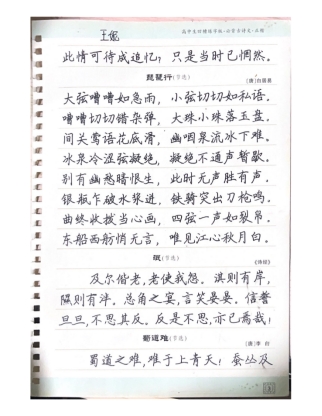 高中生班楷练字帖·必背古诗文·正楷
王佩
此情可待成追忆？只是当时已惘然。
琵琶行(节选)
[唐]白居易
大弦嘈嘈如急雨，小弦切切如私语。
嘈嘈切切错杂弹，大珠小珠落玉盘。
间关莺语花底滑，幽咽泉流冰下难。
冰泉冷涩弦凝绝，凝绝不通声暂歇。
别有幽愁暗恨生，此时无声胜有声。
银瓶乍破水浆迸，铁骑突出刀枪鸣。
曲终收拨当心画，四弦一声如裂帛。
东船西舫悄无言，唯见江心秋月白。
氓(节选)
《诗经》
及尔偕老，老使我怨。淇则有岸，
隰则有泮。总角之宴，言笑晏晏。信誓
旦旦，不思其反。反是不思，亦已焉哉！
蜀道难(节选)
[唐]李白
蜀道之难，难于上青天！蚕丛及